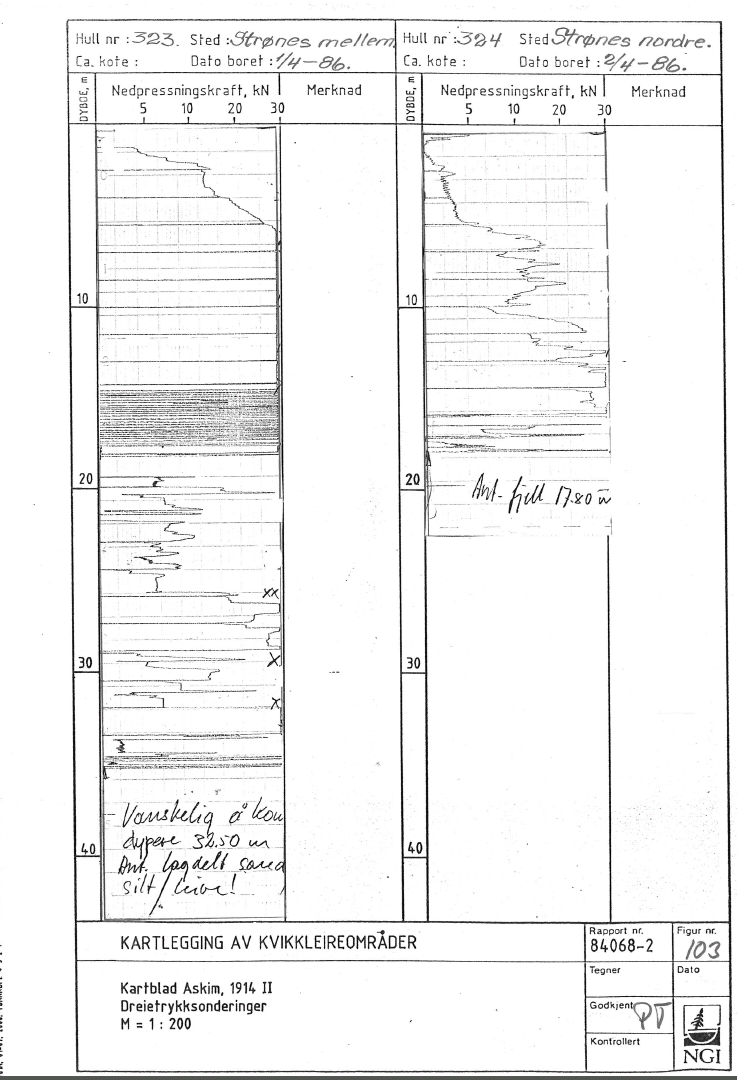 Hull nr : 323. Sted : Strønes mellem
Ca. kote : Dato boret : 1/4-86.
DYBDE, m
Nedpressningskraft, kN
5 10 20 30
Merknad
10
20
30
40
XX
X
X
Vanskelig å kom
dypere 32.50 m
Ant. lagdelt sand
silt / leire!
Hull nr : 324 Sted Strønes nordre.
Ca. kote : Dato boret : 2/4-86.
DYBDE, m
Nedpressningskraft, kN
5 10 20 30
Merknad
10
20
30
40
Ant. fjell 17.80 m
KARTLEGGING AV KVIKKLEIREOMRÅDER
Kartblad Askim, 1914 II
Dreietrykksonderinger
M = 1 : 200
Rapport nr.
84068-2
Figur nr.
103
Tegner
Dato
Godkjent
PT
Kontrollert
NGI